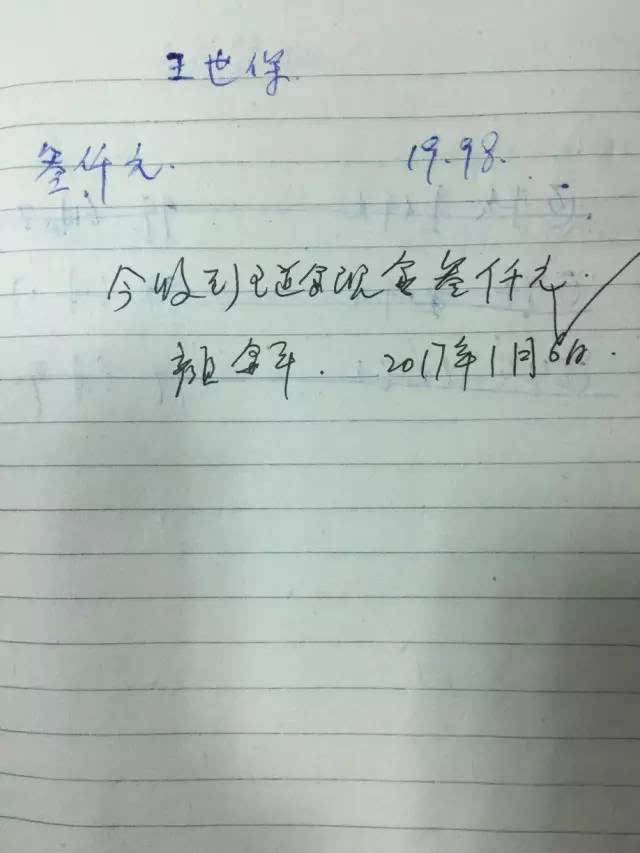 王世保.
叁仟元. 19.98.
今收到王道金现金叁仟元.
颜金平. 2017年1月6日.